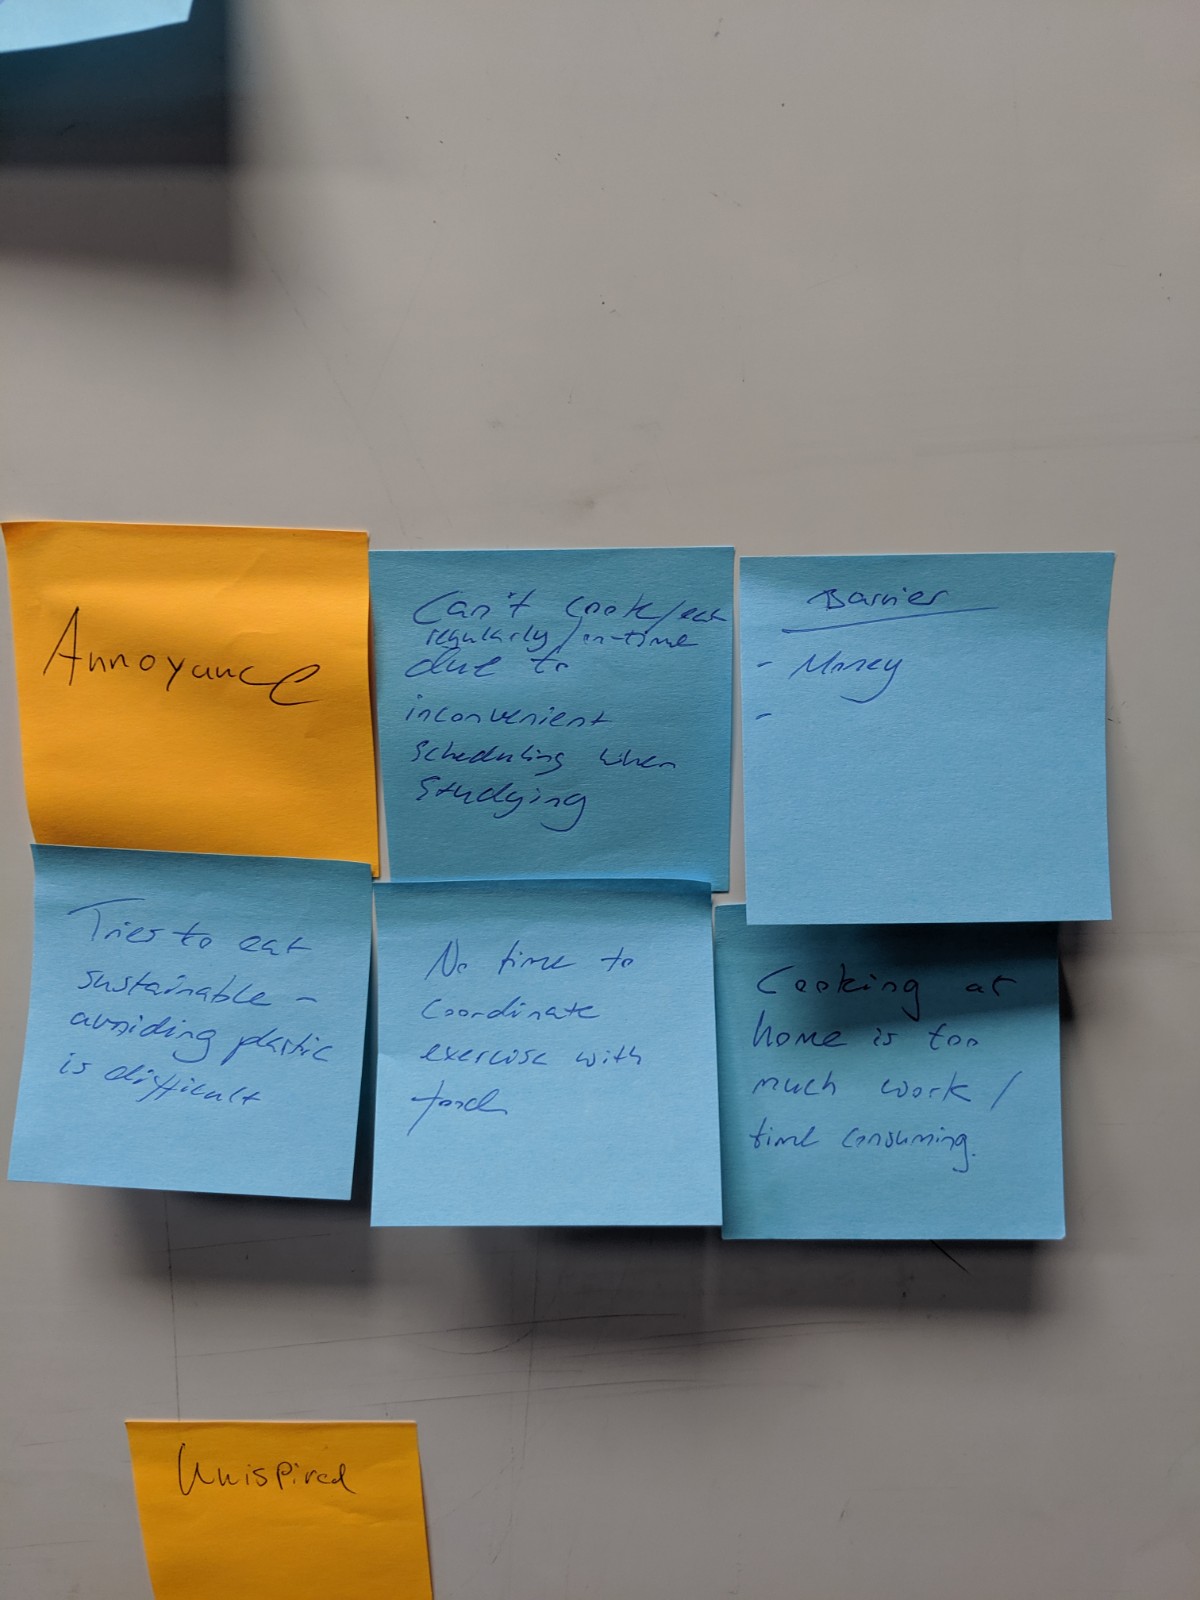 Annoyance
Can't cook/eat
regularly/on-time
due to
inconvenient
scheduling when
studying
Barrier
- Money
-
Tries to eat
sustainable -
avoiding plastic
is difficult
No time to
coordinate
exercise with
food
Cooking at
home is too
much work /
time consuming.
Unispired